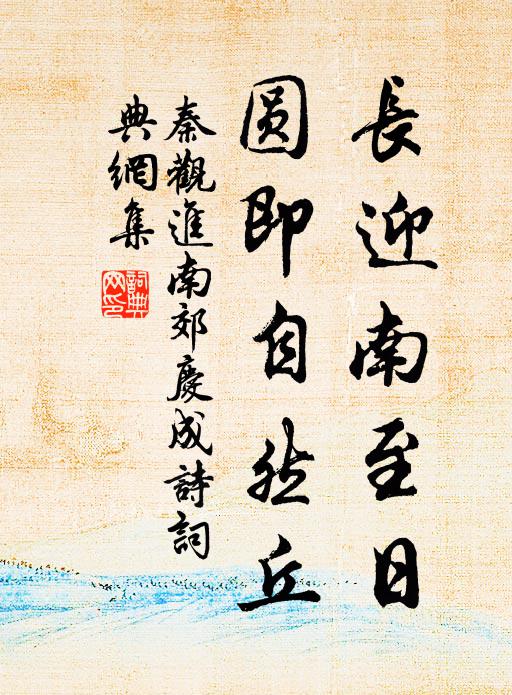 長迎南至日
圆即自然丘
秦觀進南郊慶成詩詞
典網集
詞典
网印